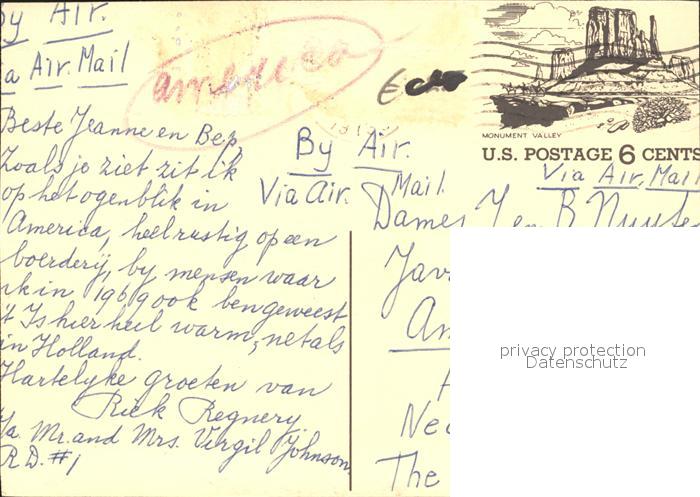 By Air.
Via Air. Mail
america
6 cts
MONUMENT VALLEY
U.S. POSTAGE 6 CENTS
Beste Jeanne en Bep,
Zoals je ziet zit ik
op het ogenblik in
America, heel rustig op een
boerderij, by mensen waar
ik in 1969 ook ben geweest
't Is hier heel warm, net als
in Holland.
Hartelyke groeten van
Riek Regnery
Mr. and Mrs. Virgil Johnson
R.D. #1
By Air.
Via Air. Mail.
Via Air. Mail
Dames J en B
Jav
Am
Ned
The
privacy protection
Datenschutz